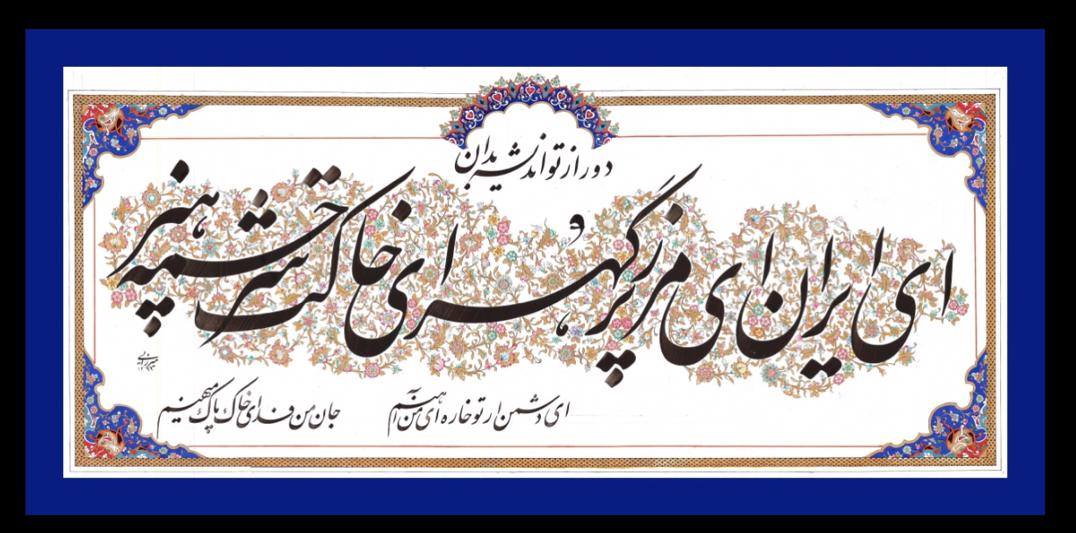 دور از تو اندیشه بدان
ای ایران ای مرز پرگهر ای خاکت سرچشمه هنر
ای دشمن ار تو خاره ای من آهنم
جان من فدای خاک پاک میهنم